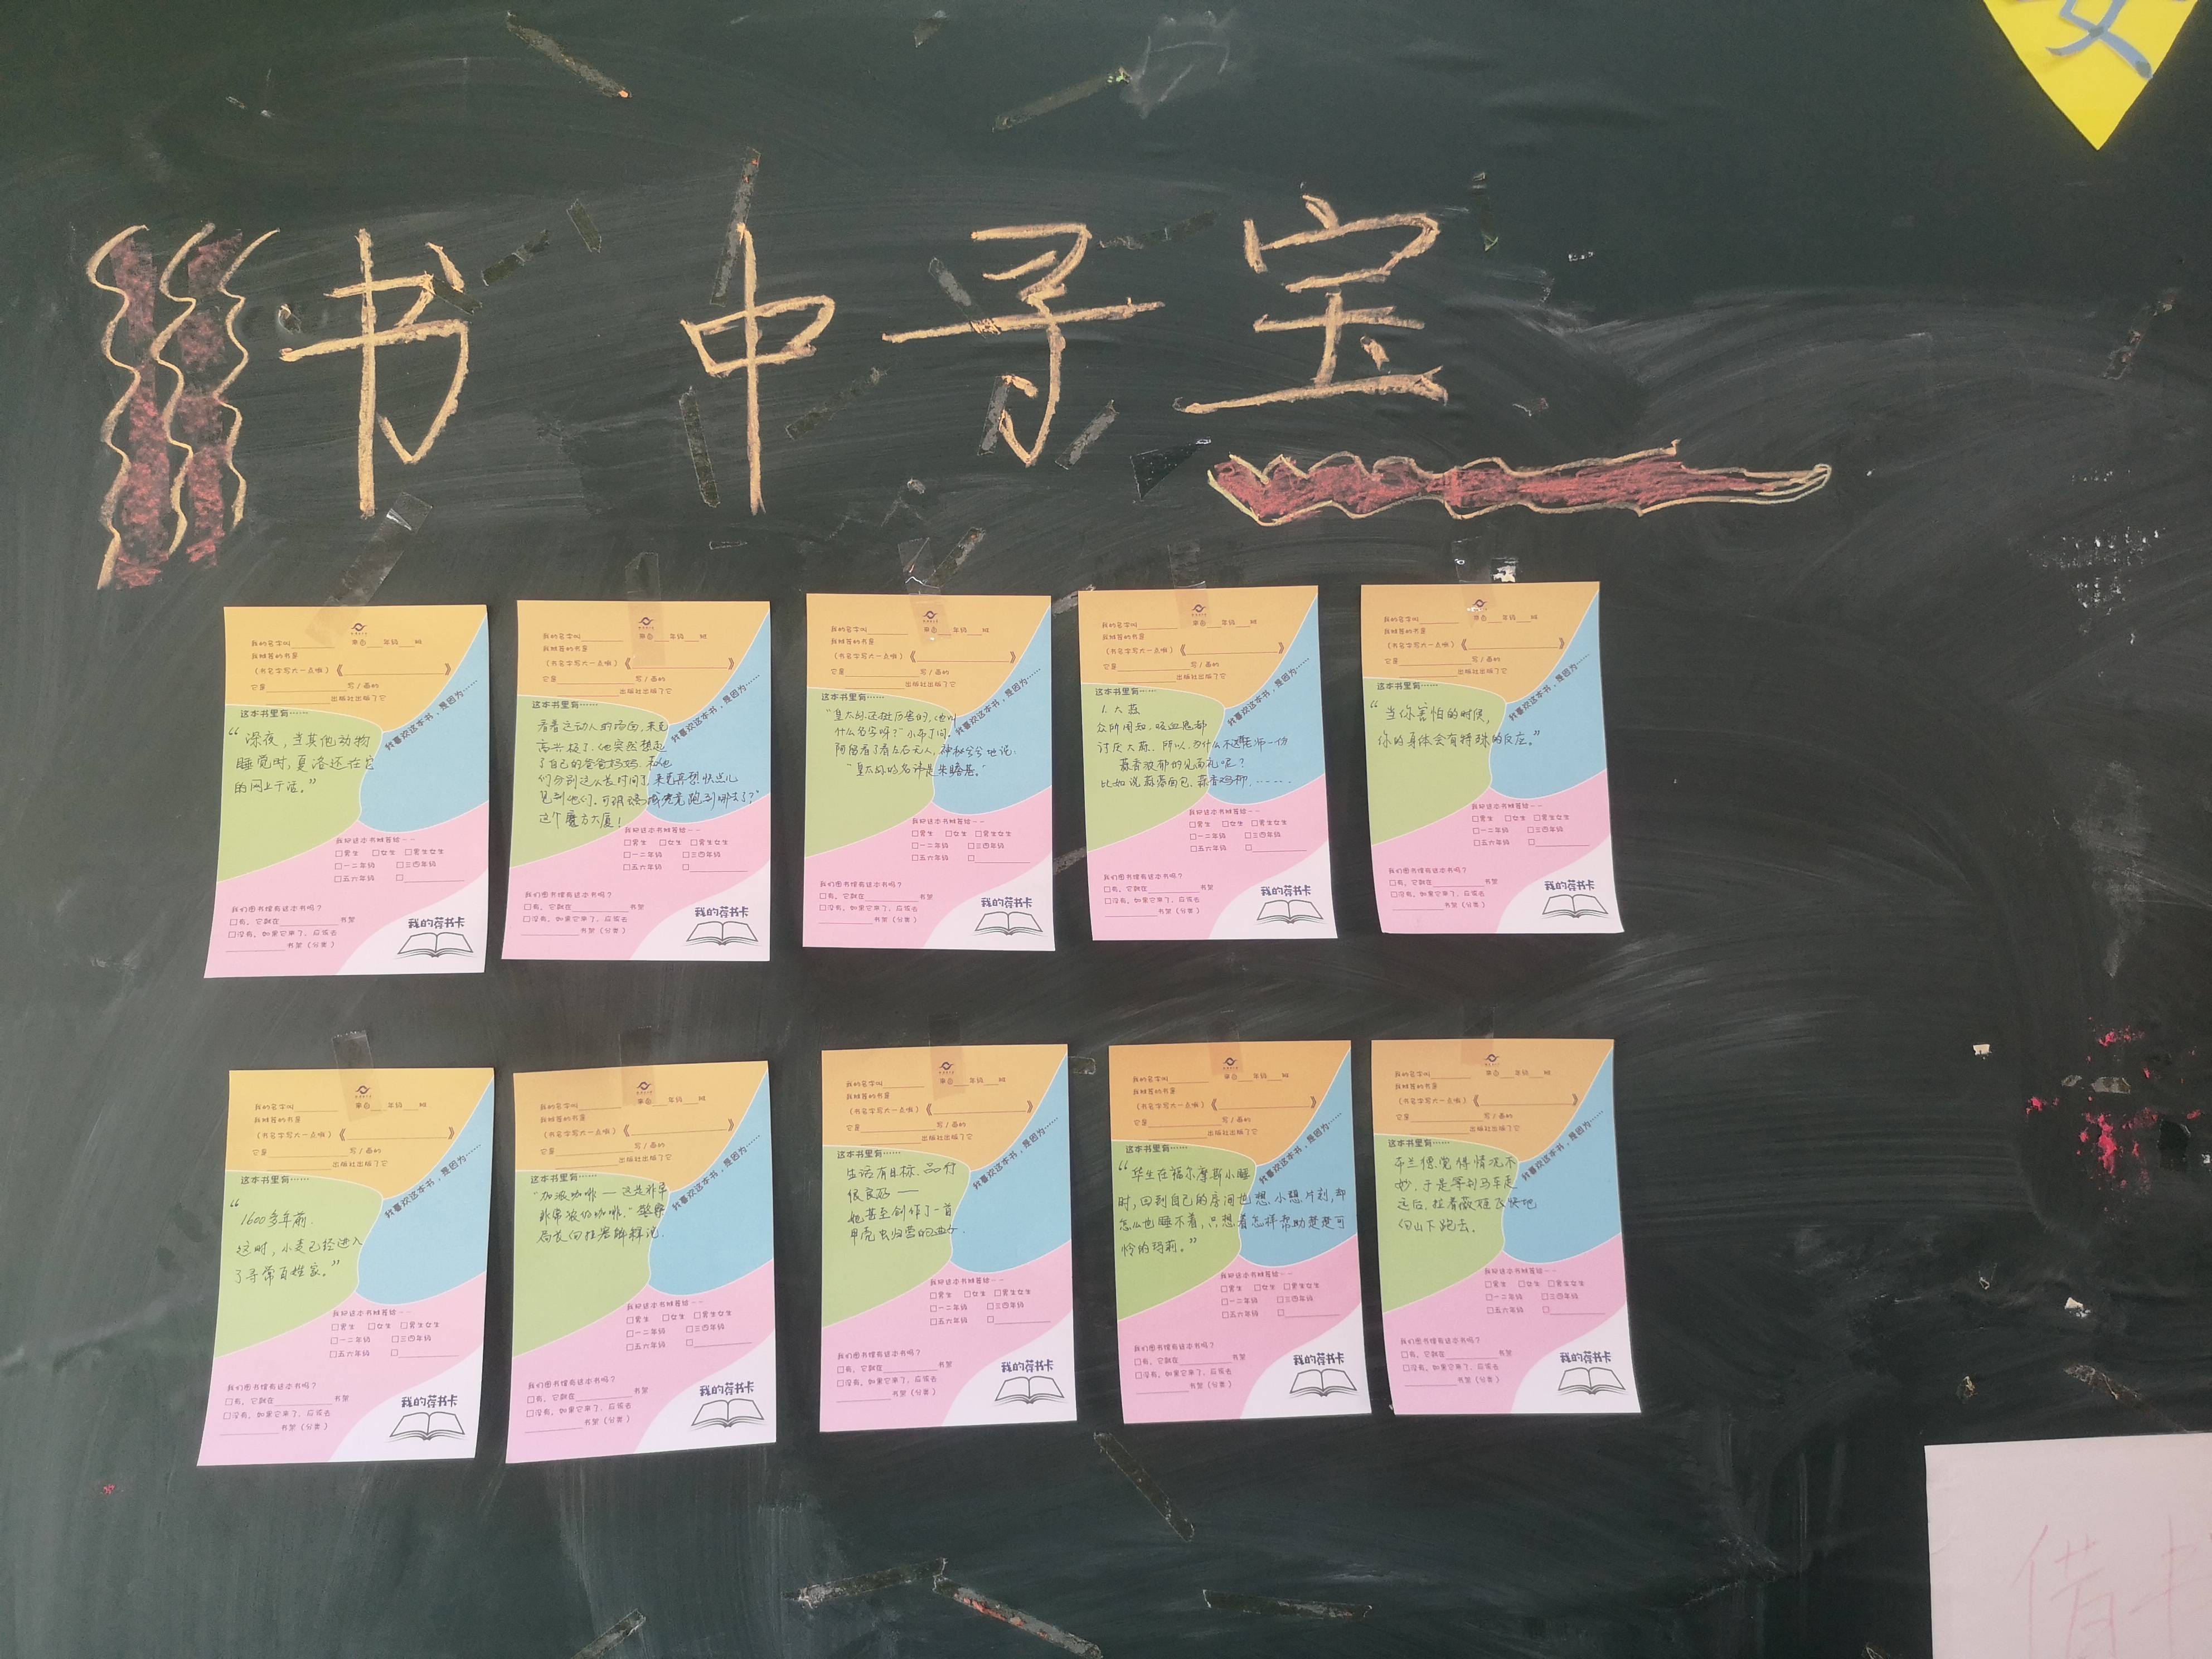 安
书中寻宝
我的名字叫 来自 年级 班
我推荐的书是
（书名字写大一点哦）《 》
它是 写/画的
出版社出版了它
我喜欢这本书，是因为……
这本书里有……
“深夜，当其他动物
睡觉时，夏洛还在它
的网上干活。”
我把这本书推荐给——
□男生 □女生 □男生女生
□一二年级 □三四年级
□五六年级 □
我们图书馆有这本书吗？
□有，它就在 书架
□没有，如果它来了，应该去
书架（分类）
我的荐书卡
我的名字叫 来自 年级 班
我推荐的书是
（书名字写大一点哦）《 》
它是 写/画的
出版社出版了它
我喜欢这本书，是因为……
这本书里有……
看着这动人的场面，来克
高兴极了。他突然想起
了自己的爸爸妈妈，和他
们分别这么长时间了，来克真想快点儿
见到他们。可 究竟跑到哪去了？”
这个魔方大厦！
我把这本书推荐给——
□男生 □女生 □男生女生
□一二年级 □三四年级
□五六年级 □
我们图书馆有这本书吗？
□有，它就在 书架
□没有，如果它来了，应该去
书架（分类）
我的荐书卡
我的名字叫 来自 年级 班
我推荐的书是
（书名字写大一点哦）《 》
它是 写/画的
出版社出版了它
我喜欢这本书，是因为……
这本书里有……
“皇太孙还挺厉害的，他叫
什么名字呀？”小布丁问。
阿 看了看左右无人，神秘兮兮地说：
“皇太孙的名讳是朱瞻基。”
我把这本书推荐给——
□男生 □女生 □男生女生
□一二年级 □三四年级
□五六年级 □
我们图书馆有这本书吗？
□有，它就在 书架
□没有，如果它来了，应该去
书架（分类）
我的荐书卡
我的名字叫 来自 年级 班
我推荐的书是
（书名字写大一点哦）《 》
它是 写/画的
出版社出版了它
我喜欢这本书，是因为……
这本书里有……
1.大蒜
众所周知，吸血鬼都
讨厌大蒜。所以，为什么不送老师一份
蒜香浓郁的见面礼呢？
比如说蒜蓉面包、蒜香鸡柳……
我把这本书推荐给——
□男生 □女生 □男生女生
□一二年级 □三四年级
□五六年级 □
我们图书馆有这本书吗？
□有，它就在 书架
□没有，如果它来了，应该去
书架（分类）
我的荐书卡
我的名字叫 来自 年级 班
我推荐的书是
（书名字写大一点哦）《 》
它是 写/画的
出版社出版了它
我喜欢这本书，是因为……
这本书里有……
“当你害怕的时候，
你的身体会有特殊的反应。”
我把这本书推荐给——
□男生 □女生 □男生女生
□一二年级 □三四年级
□五六年级 □
我们图书馆有这本书吗？
□有，它就在 书架
□没有，如果它来了，应该去
书架（分类）
我的荐书卡
我的名字叫 来自 年级 班
我推荐的书是
（书名字写大一点哦）《 》
它是 写/画的
出版社出版了它
我喜欢这本书，是因为……
这本书里有……
“1600多年前，
这时，小麦已经进入
了寻常百姓家。”
我把这本书推荐给——
□男生 □女生 □男生女生
□一二年级 □三四年级
□五六年级 □
我们图书馆有这本书吗？
□有，它就在 书架
□没有，如果它来了，应该去
书架（分类）
我的荐书卡
我的名字叫 来自 年级 班
我推荐的书是
（书名字写大一点哦）《 》
它是 写/画的
出版社出版了它
我喜欢这本书，是因为……
这本书里有……
“加浓咖啡——这是非常
非常浓的咖啡。”警察
局长向 解释说。
我把这本书推荐给——
□男生 □女生 □男生女生
□一二年级 □三四年级
□五六年级 □
我们图书馆有这本书吗？
□有，它就在 书架
□没有，如果它来了，应该去
书架（分类）
我的荐书卡
我的名字叫 来自 年级 班
我推荐的书是
（书名字写大一点哦）《 》
它是 写/画的
出版社出版了它
我喜欢这本书，是因为……
这本书里有……
生活有目标、品行
很良好——
她甚至创作了一首
甲壳虫归营的曲子。
我把这本书推荐给——
□男生 □女生 □男生女生
□一二年级 □三四年级
□五六年级 □
我们图书馆有这本书吗？
□有，它就在 书架
□没有，如果它来了，应该去
书架（分类）
我的荐书卡
我的名字叫 来自 年级 班
我推荐的书是
（书名字写大一点哦）《 》
它是 写/画的
出版社出版了它
我喜欢这本书，是因为……
这本书里有……
“华生在福尔摩斯小睡
时，回到自己的房间也想小憩片刻，却
怎么也睡不着，只想着怎样帮助楚楚可
怜的玛莉。”
我把这本书推荐给——
□男生 □女生 □男生女生
□一二年级 □三四年级
□五六年级 □
我们图书馆有这本书吗？
□有，它就在 书架
□没有，如果它来了，应该去
书架（分类）
我的荐书卡
我的名字叫 来自 年级 班
我推荐的书是
（书名字写大一点哦）《 》
它是 写/画的
出版社出版了它
我喜欢这本书，是因为……
这本书里有……
布兰德觉得情况不
妙，于是等到马车走
远后，拉着薇娅飞快地
向山下跑去。
我把这本书推荐给——
□男生 □女生 □男生女生
□一二年级 □三四年级
□五六年级 □
我们图书馆有这本书吗？
□有，它就在 书架
□没有，如果它来了，应该去
书架（分类）
我的荐书卡
借书